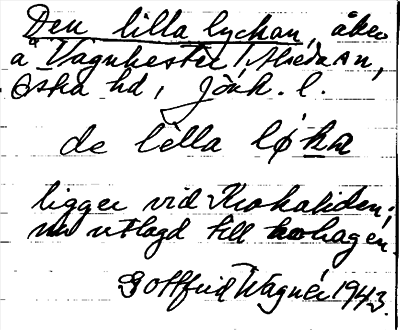 Den lilla lyckan, åker
å Vagnhester, Alseda sn,
Östra hd, Jönk. l.
de lilla løka
ligger vid Krokaliden;
nu utlagd till kohagen.
Gottfrid Wagnér 1943.